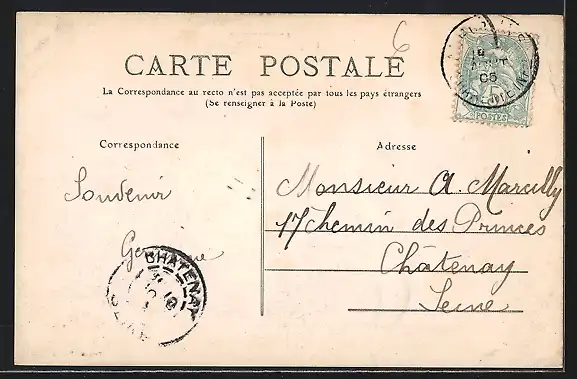 6
CARTE POSTALE
La Correspondance au recto n'est pas acceptée par tous les pays étrangers
(Se renseigner à la Poste)
Correspondance
Adresse
Souvenir
Germaine
Monsieur A. Marcilly
17 chemin des Princes
Châtenay
Seine
CHATENAY
SEINE
AOUT
05
5
POSTES